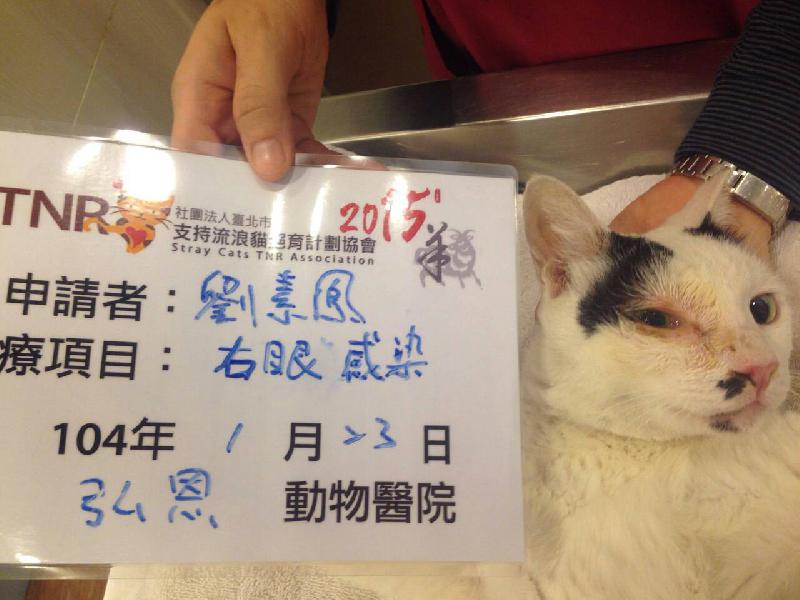 TNR 社團法人臺北市
支持流浪貓絕育計劃協會
Stray Cats TNR Association
2015 羊
申請者：劉素鳳
療項目：右眼感染
104年1月23日
弘恩動物醫院